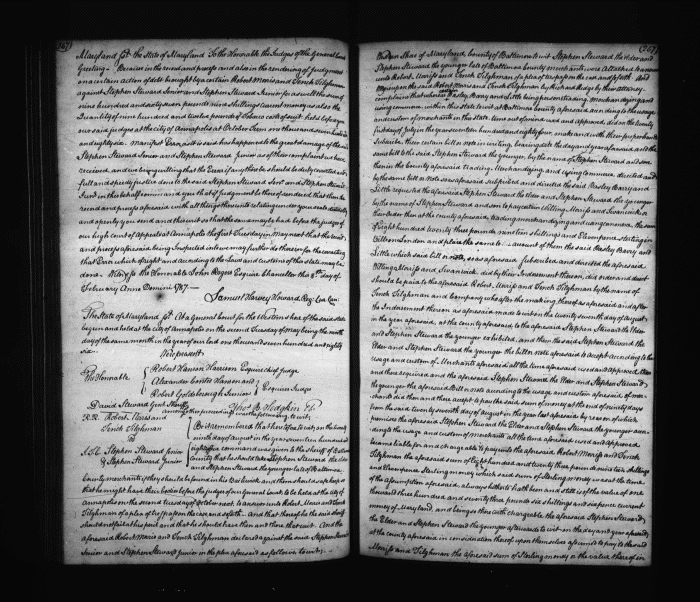 (367)
Maryland Sct. The State of Maryland To the Honorable the Judges of the General Court
Greeting. Because in the record and process and also in the rendering of Judgment
on a certain action of debt brought by a certain Robert Morris and Tench Tilghman
against Stephen Steward Senior and Stephen Steward Junior for as well the sum of
nine hundred and sixty seven pounds nine shillings current money as also the
Quantity of nine hundred and twelve pounds of Tobacco costs of suit had before
our said judges at the city of Annapolis at October Term one thousand seven hundred
and eighty six. Manifest Error as it is said has happened to the great damage of them said
Stephen Steward Senior and Stephen Steward Junior as of their complaint we have
received, and we being willing that the Error if any there be should be duly corrected and
full and speedy justice done to the said Stephen Steward Senr. and Stephen Steward
Junr. in this behalf command you that if Judgment be thereof rendered that then the
record and process aforesaid with all things thereunto relating under your seals distinctly
and openly you send and this writ so that the same may be had before the judges of
our high court of appeals at Annapolis the first Tuesday in May next that the record
and process aforesaid being Inspected we may further do therein for the correcting
that Error which of right and according to the Laws and customs of this state may be
done. Witness the Honorable John Rogers Esquire Chancellor the 8th. day of
February Anno Domini 1787.
Samuel Harvey Howard Reg: Cur. Can:
The State of Maryland Sct. At a General Court for the Western shore of the said state
begun and held at the city of Annapolis on the second Tuesday of May being the ninth
day of the same month in the year of our lord one thousand seven hundred and eighty
six.
Were present
The Honorable
Robert Hanson Harrison Esquire chief judge
Alexander Contee Hanson and
Robert Goldsborough Junior
Esquires Judges
David Steward Gent. Sheriff
Thos. B. Hodgkin Ck.
among other proceedings were the following, to wit;
Robert Morris and
Tench Tilghman
vs
Stephen Steward Senior
& Stephen Steward Junior
Be it remembered that heretofore to wit; on the twenty
ninth day of august in the year seventeen hundred and
eighty five command was given to the sheriff of Baltimore
county that he should take Stephen Steward the Elder
and Stephen Steward the younger late of Baltimore
county merchants if they should be found in his Bailiwick and them should safe keep so
that he might have their bodies before the judges of our General Court to be held at the city of
Annapolis on the second tuesday of October next to answer unto Robert Morris and Tench
Tilghman of a plea of trespass on the case and so forth. And that thereof he the said sheriff
should not fail at his peril and that he should have then and there that writ. And the
aforesaid Robert Morris and Tench Tilghman declared against the said Stephen Steward
Senior and Stephen Steward junior in the plea aforesaid as follows to wit;
(367)
Western Shore of Maryland, county of Baltimore to wit Stephen Steward the elder and
Stephen Steward the younger late of Baltimore county merchants, were attached to answer
unto Robert Morriss and Tench Tilghman of a plea of trespass on the case and so forth. And
whereupon the said Robert Morris and Tench Tilghman by Richard Ridgely their attorney
complain that whereas Parsley Barry and Little being persons trading, merchandizing and
using commerce within this state to wit at Baltimore county aforesaid according to the usage
and custom of merchants in this state time out of mind used and approved did on the twenty
first day of July in the year seventeen hundred and eighty four make and with their proper hands
subscribe their certain bill or note in writing, bearing date the day and year aforesaid and the
same bill to the said Stephen Steward the younger, by the name of Stephen Steward and son
then in the County aforesaid trading Merchandizing, and using commerce directed and
by the same bill or note so as aforesaid subscribed and directed the said Parsley Barry and
Little requested the aforesaid Stephen Steward the Elder and Stephen Steward the younger
by the name of Stephen Steward and son to pay unto Messrs Billing Morriss and Swanwick or
their order then at the county aforesaid, trading merchandizing and using commerce, the sum
of eight hundred twenty three pounds, nineteen shillings and Eleven pence sterling in
bills on London and place the same to account of them the said Parsley Barry and
Little which said bill or note, so as aforesaid subscribed and directed the aforesaid
Billing Morriss and Swanwick did by their Indorsement thereon, did order and direct
should be paid to the aforesaid Robert Morriss and Tench Tilghman by the name of
Tench Tilghman and Company who after the making thereof as aforesaid and after
the Indorsement thereon as aforesaid made to wit on the twenty seventh day of august
in the year aforesaid, at the county aforesaid to the aforesaid Stephen Steward the Elder
and Stephen Steward the younger exhibited, and then the said Stephen Steward the
Elder and Stephen Steward the younger the bill or note aforesaid to accept according to the
usage and custom of Merchants aforesaid all the time aforesaid used and approved then
and there required and the aforesaid Stephen Steward the Elder and Stephen Steward the
younger the aforesaid Bill or note according to the usage and custom aforesaid of merchants
did then and there accept to pay the said sum of money at the end of ninety days
from the said twenty seventh day of august in the year last aforesaid by reason of which
premises the aforesaid Stephen Steward the Elder and Stephen Steward the younger accor
ding to the usage and custom of merchants all the time aforesaid used and approved
became liable for and chargeable to pay unto the aforesaid Robert Morriss and Tench
Tilghman the aforesaid sum of Eight hundred and twenty three pounds nineteen shillings
and Eleven pence Sterling money which said sum of Sterling money was at the time
of the assumption aforesaid, always hitherto hath been and still is of the value of one
thousand three hundred and seventy three pounds six shillings and six pence current
money of Maryland, and being so therewith chargeable the aforesaid Stephen Steward
the Elder and Stephen Steward the younger afterwards to wit on the day and year aforesaid
at the county aforesaid in consideration thereof upon themselves assumed to pay to the said
Morriss and Tilghman the aforesaid sum of Sterling money or the value thereof in